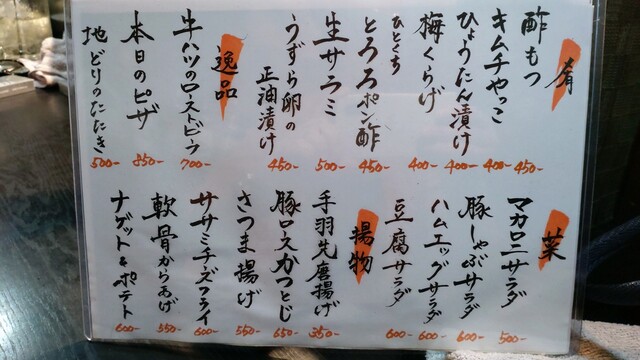 肴
酢もつ 450-
キムチやっこ 400-
ひょうたん漬け 400-
梅くらげ 400-
ひとくち
とろろポン酢 450-
生サラミ 500-
うずら卵の
正油漬け 450-
逸品
牛ハツのローストビーフ 700-
本日のピザ 850-
地どりのたたき 500-
菜
マカロニサラダ 500-
豚しゃぶサラダ 600-
ハムエッグサラダ 600-
豆腐サラダ 600-
揚物
手羽先唐揚げ 350-
豚ロスかつとじ 650-
さつま揚げ 550-
ササミチーズフライ 600-
軟骨からあげ 550-
ナゲット&ポテト 600-